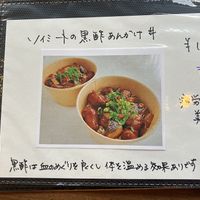 ソイミートの黒酢あんかけ丼
黒酢は血のめぐりを良くし体を温める効果ありです